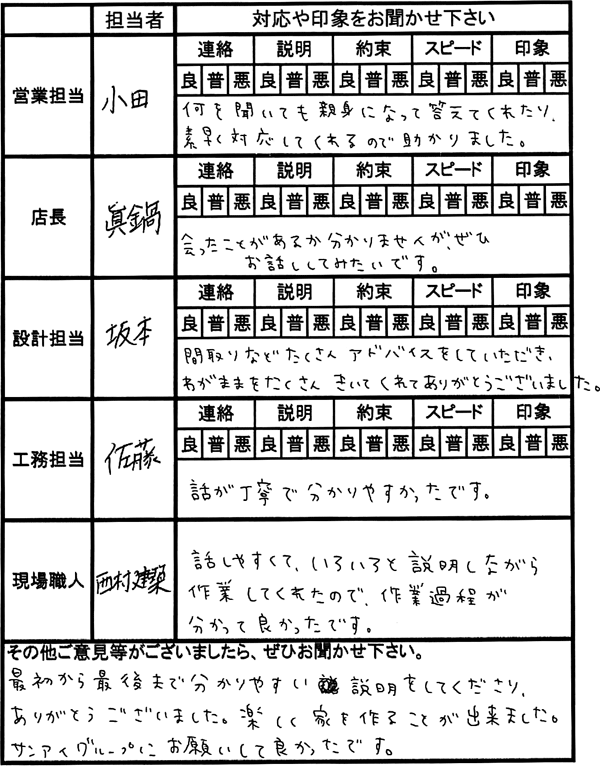 担当者 対応や印象をお聞かせ下さい
営業担当 小田 連絡 説明 約束 スピード 印象
良 普 悪 良 普 悪 良 普 悪 良 普 悪 良 普 悪
何を聞いても親身になって答えてくれたり、
素早く対応してくれるので助かりました。
店長 眞鍋 連絡 説明 約束 スピード 印象
良 普 悪 良 普 悪 良 普 悪 良 普 悪 良 普 悪
会ったことがあるか分かりませんが、ぜひ
お話ししてみたいです。
設計担当 坂本 連絡 説明 約束 スピード 印象
良 普 悪 良 普 悪 良 普 悪 良 普 悪 良 普 悪
間取りなどたくさんアドバイスをしていただき、
わがままをたくさんきいてくれてありがとうございました。
工務担当 佐藤 連絡 説明 約束 スピード 印象
良 普 悪 良 普 悪 良 普 悪 良 普 悪 良 普 悪
話が丁寧で分かりやすかったです。
現場職人 西村建築
話しやすくて、いろいろと説明しながら
作業してくれたので、作業過程が
分かって良かったです。
その他ご意見等がございましたら、ぜひお聞かせ下さい。
最初から最後まで分かりやすい説明をしてくださり、
ありがとうございました。楽しく家を作ることが出来ました。
サンアイグループにお願いして良かったです。